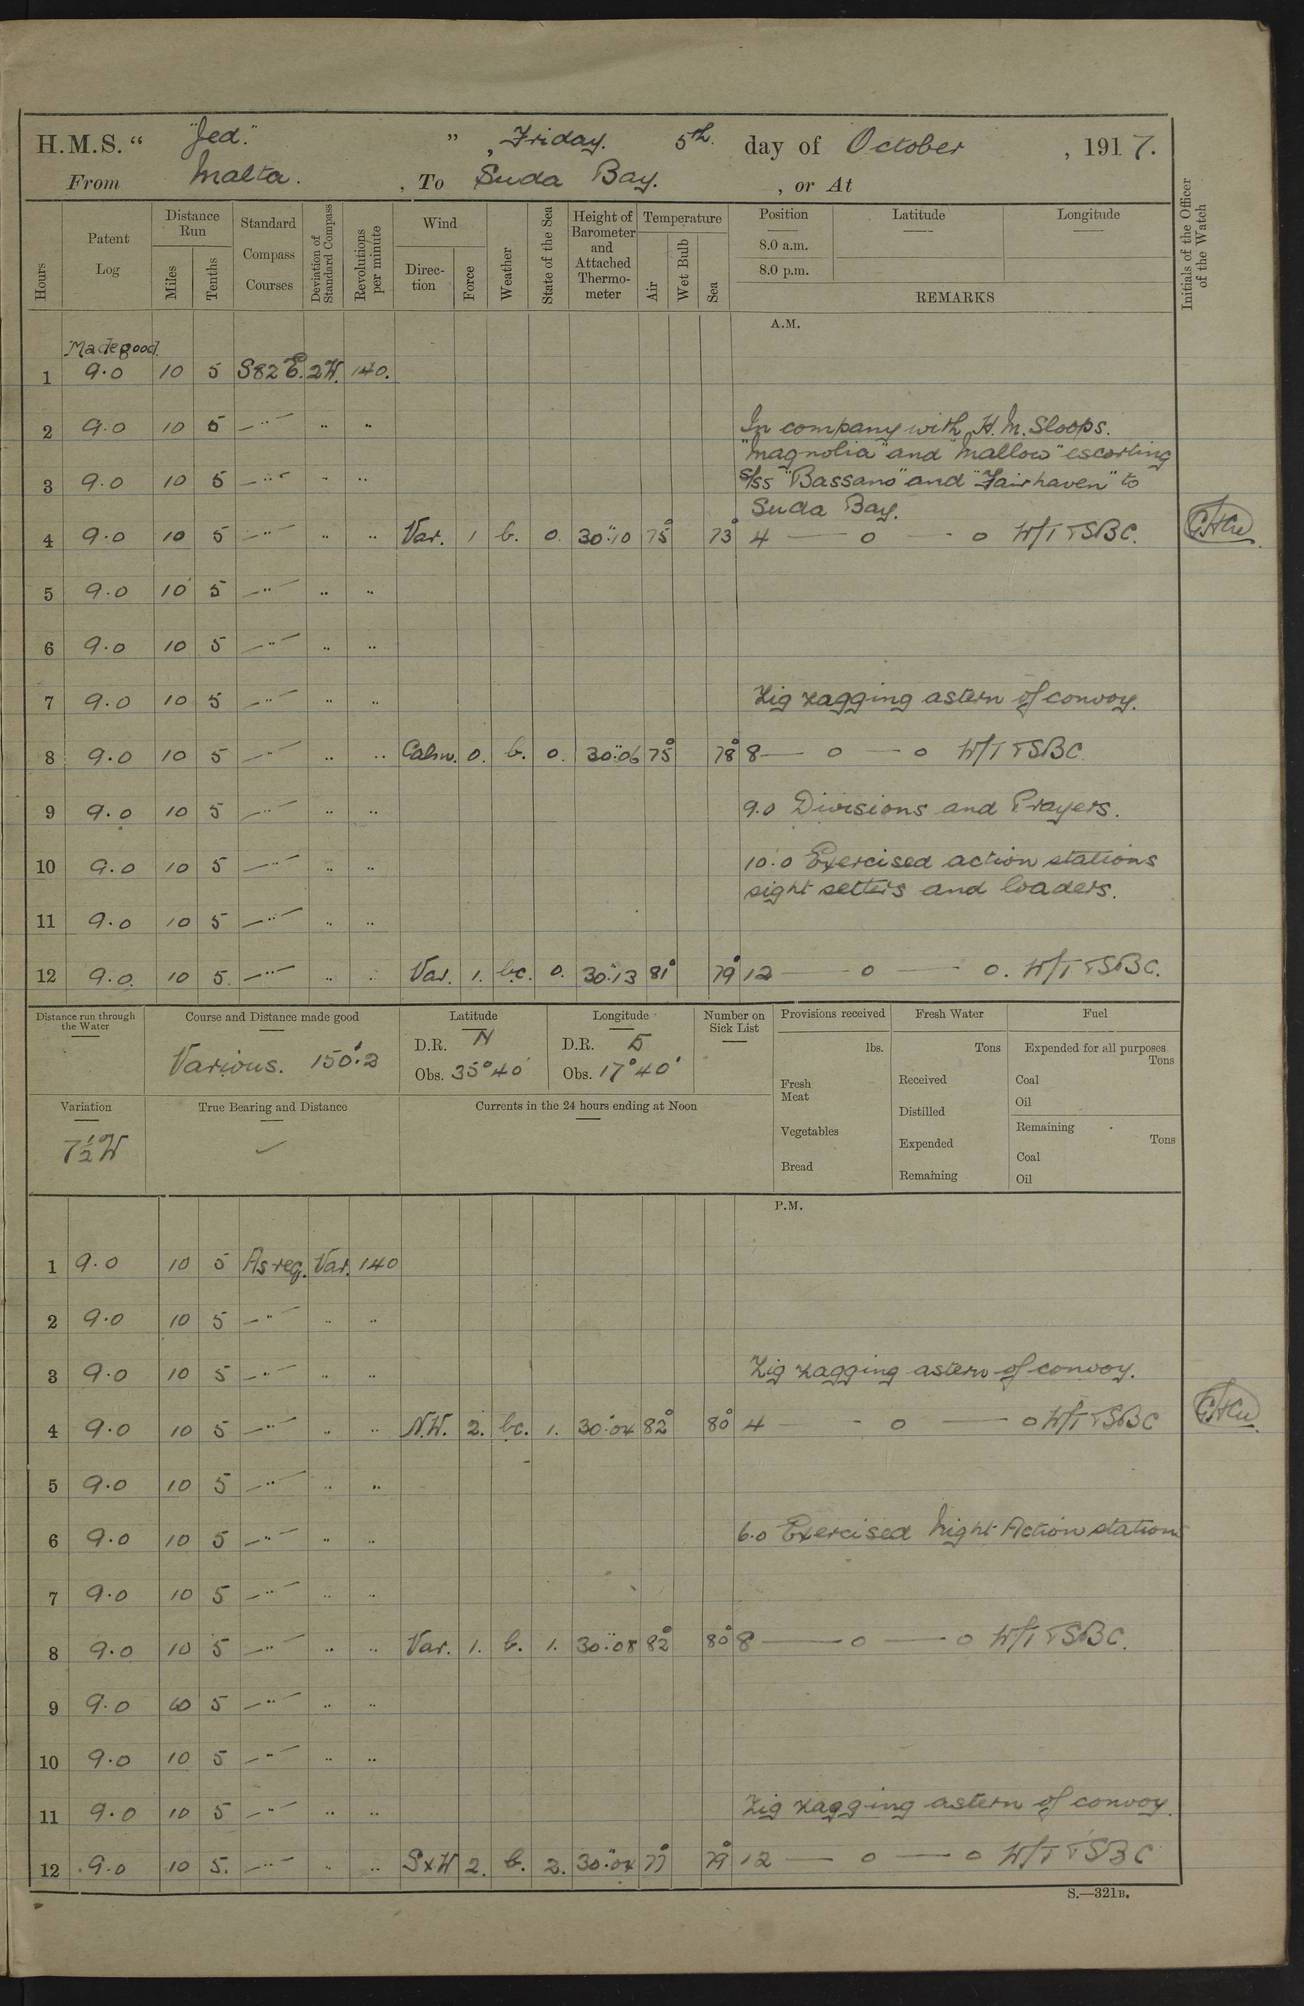 H.M.S. “ "Jed." ” , Friday. 5th. day of October , 1917.
From Malta. , To Suda Bay. , or At
Hours
Patent Log
Distance Run
Miles
Tenths
Standard Compass Courses
Deviation of Standard Compass
Revolutions per minute
Wind
Direc-tion
Force
Weather
State of the Sea
Height of Barometer and Attached Thermo-meter
Temperature
Air
Wet Bulb
Sea
Position
8.0 a.m.
8.0 p.m.
Latitude
Longitude
REMARKS
Initials of the Officer of the Watch
A.M.
Made good.
1 9.0 10 5 S82E. 2W. 140.
2 9.0 10 5 —"— " " In company with H.M. Sloops.
"Magnolia" and "Mallow" escorting
3 9.0 10 5 —"— " " S/SS "Bassano" and "Fairhaven" to
Suda Bay.
4 9.0 10 5 —"— " " Var. 1 b. 0. 30.10 75° 73° 4 — o — o W/T TSBC.
5 9.0 10 5 —"— " "
6 9.0 10 5 —"— " "
7 9.0 10 5 —"— " " Zig zagging astern of convoy.
8 9.0 10 5 —"— " " Calm. 0. b. 0. 30.06 75° 78° 8 — o — o W/T TSBC
9 9.0 10 5 —"— " " 9.0 Divisions and Prayers.
10 9.0 10 5 —"— " " 10.0 Exercised action stations
sight setters and loaders.
11 9.0 10 5 —"— " "
12 9.0. 10 5. —"— " " Var. 1. bc. 0. 30.13 81° 79° 12 — o — o. W/T TSBC.
Distance run through the Water
Course and Distance made good
Various. 150.2
Latitude
D.R. N
Obs. 35°40'
Longitude
D.R. E
Obs. 17°40'
Number on Sick List
Provisions received
lbs.
Fresh Meat
Vegetables
Bread
Fresh Water
Tons
Received
Distilled
Expended
Remaining
Fuel
Expended for all purposes
Tons
Coal
Oil
Remaining
Tons
Coal
Oil
Variation
7½°W
True Bearing and Distance
Currents in the 24 hours ending at Noon
P.M.
1 9.0 10 5 As req. Var. 140
2 9.0 10 5 —"— " "
3 9.0 10 5 —"— " " Zig zagging astern of convoy.
4 9.0 10 5 —"— " " N.W. 2. bc. 1. 30.04 82° 80° 4 — o — o W/T TSBC
5 9.0 10 5 —"— " "
6 9.0 10 5 —"— " " 6.0 Exercised Night Action stations
7 9.0 10 5 —"— " "
8 9.0 10 5 —"— " " Var. 1. b. 1. 30.08 82° 80° 8 — o — o W/T TSBC.
9 9.0 10 5 —"— " "
10 9.0 10 5 —"— " "
11 9.0 10 5 —"— " " Zig zagging astern of convoy.
12 9.0 10 5. —"— " " SxW 2. b. 2. 30.04 77° 79° 12 — o — o W/T TSBC
S.—321B.